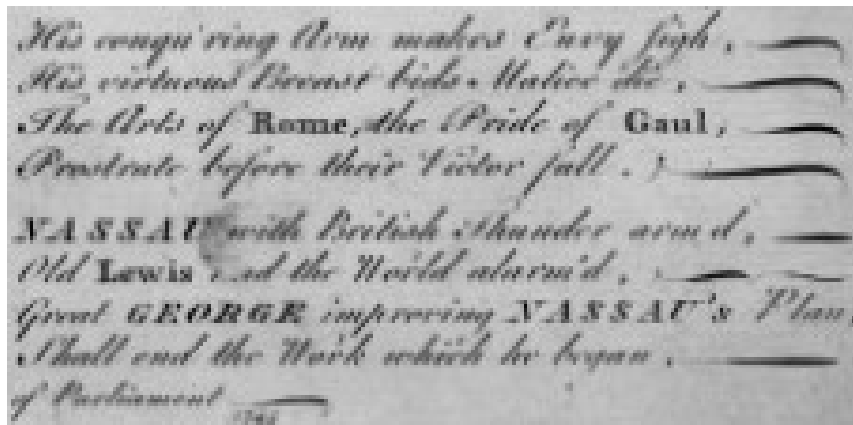 His conqu'ring Arm makes Envy sigh,
His virtuous Breast bids Malice die,
The Arts of Rome, the Pride of Gaul,
Prostrate before their Victor fall.
NASSAU with British Thunder arm'd,
Old Lewis and the World alarm'd,
Great GEORGE improving NASSAU's Plan,
Shall end the Work which he began.
of Parliament